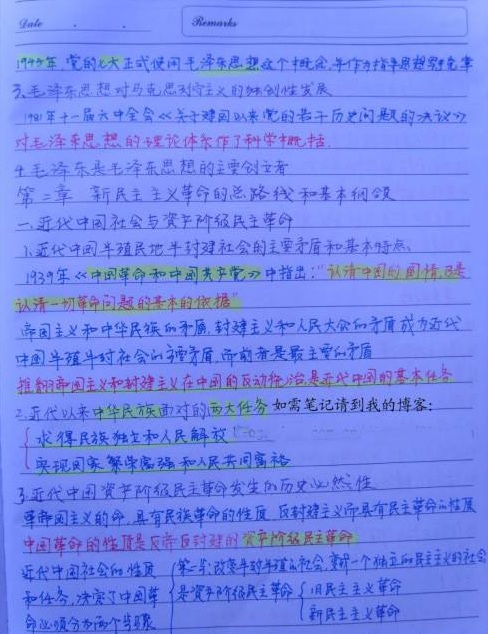 Date . . Remarks
1945年,党的七大正式使用毛泽东思想这个概念,并作为指导思想写党章
3.毛泽东思想对马克思列宁主义的独创性发展
1981年十一届六中全会《关于建国以来党的若干历史问题的决议》
对毛泽东思想的理论体系作了科学概括.
4.毛泽东是毛泽东思想的主要创立者
第二章 新民主主义革命的总路线和基本纲领
一.近代中国社会与资产阶级民主革命
1.近代中国半殖民地半封建社会的主要矛盾和基本特点
1939年《中国革命和中国共产党》中指出:"认清中国的国情,乃是
认清一切革命问题的基本的依据"
帝国主义和中华民族的矛盾,封建主义和人民大众的矛盾成为近代
中国半殖半封社会的主要矛盾,而前者是最主要的矛盾
推翻帝国主义和封建主义在中国的反动统治,是近代中国的基本任务
2.近代以来中华民族面对的两大任务 如需笔记请到我的博客:
求得民族独立和人民解放
实现国家繁荣富强和人民共同富裕
3.近代中国资产阶级民主革命发生的历史必然性
革帝国主义的命,具有民族革命的性质 反封建主义而具有民主革命的性质
中国革命的性质是反帝反封建的资产阶级民主革命
近代中国社会的性质 第一步:改变半封半殖的社会,变成一个独立的民主主义的社会
和任务,决定了中国革 是资产阶级民主革命 旧民主主义革命
命必须分为两个步骤 新民主主义革命